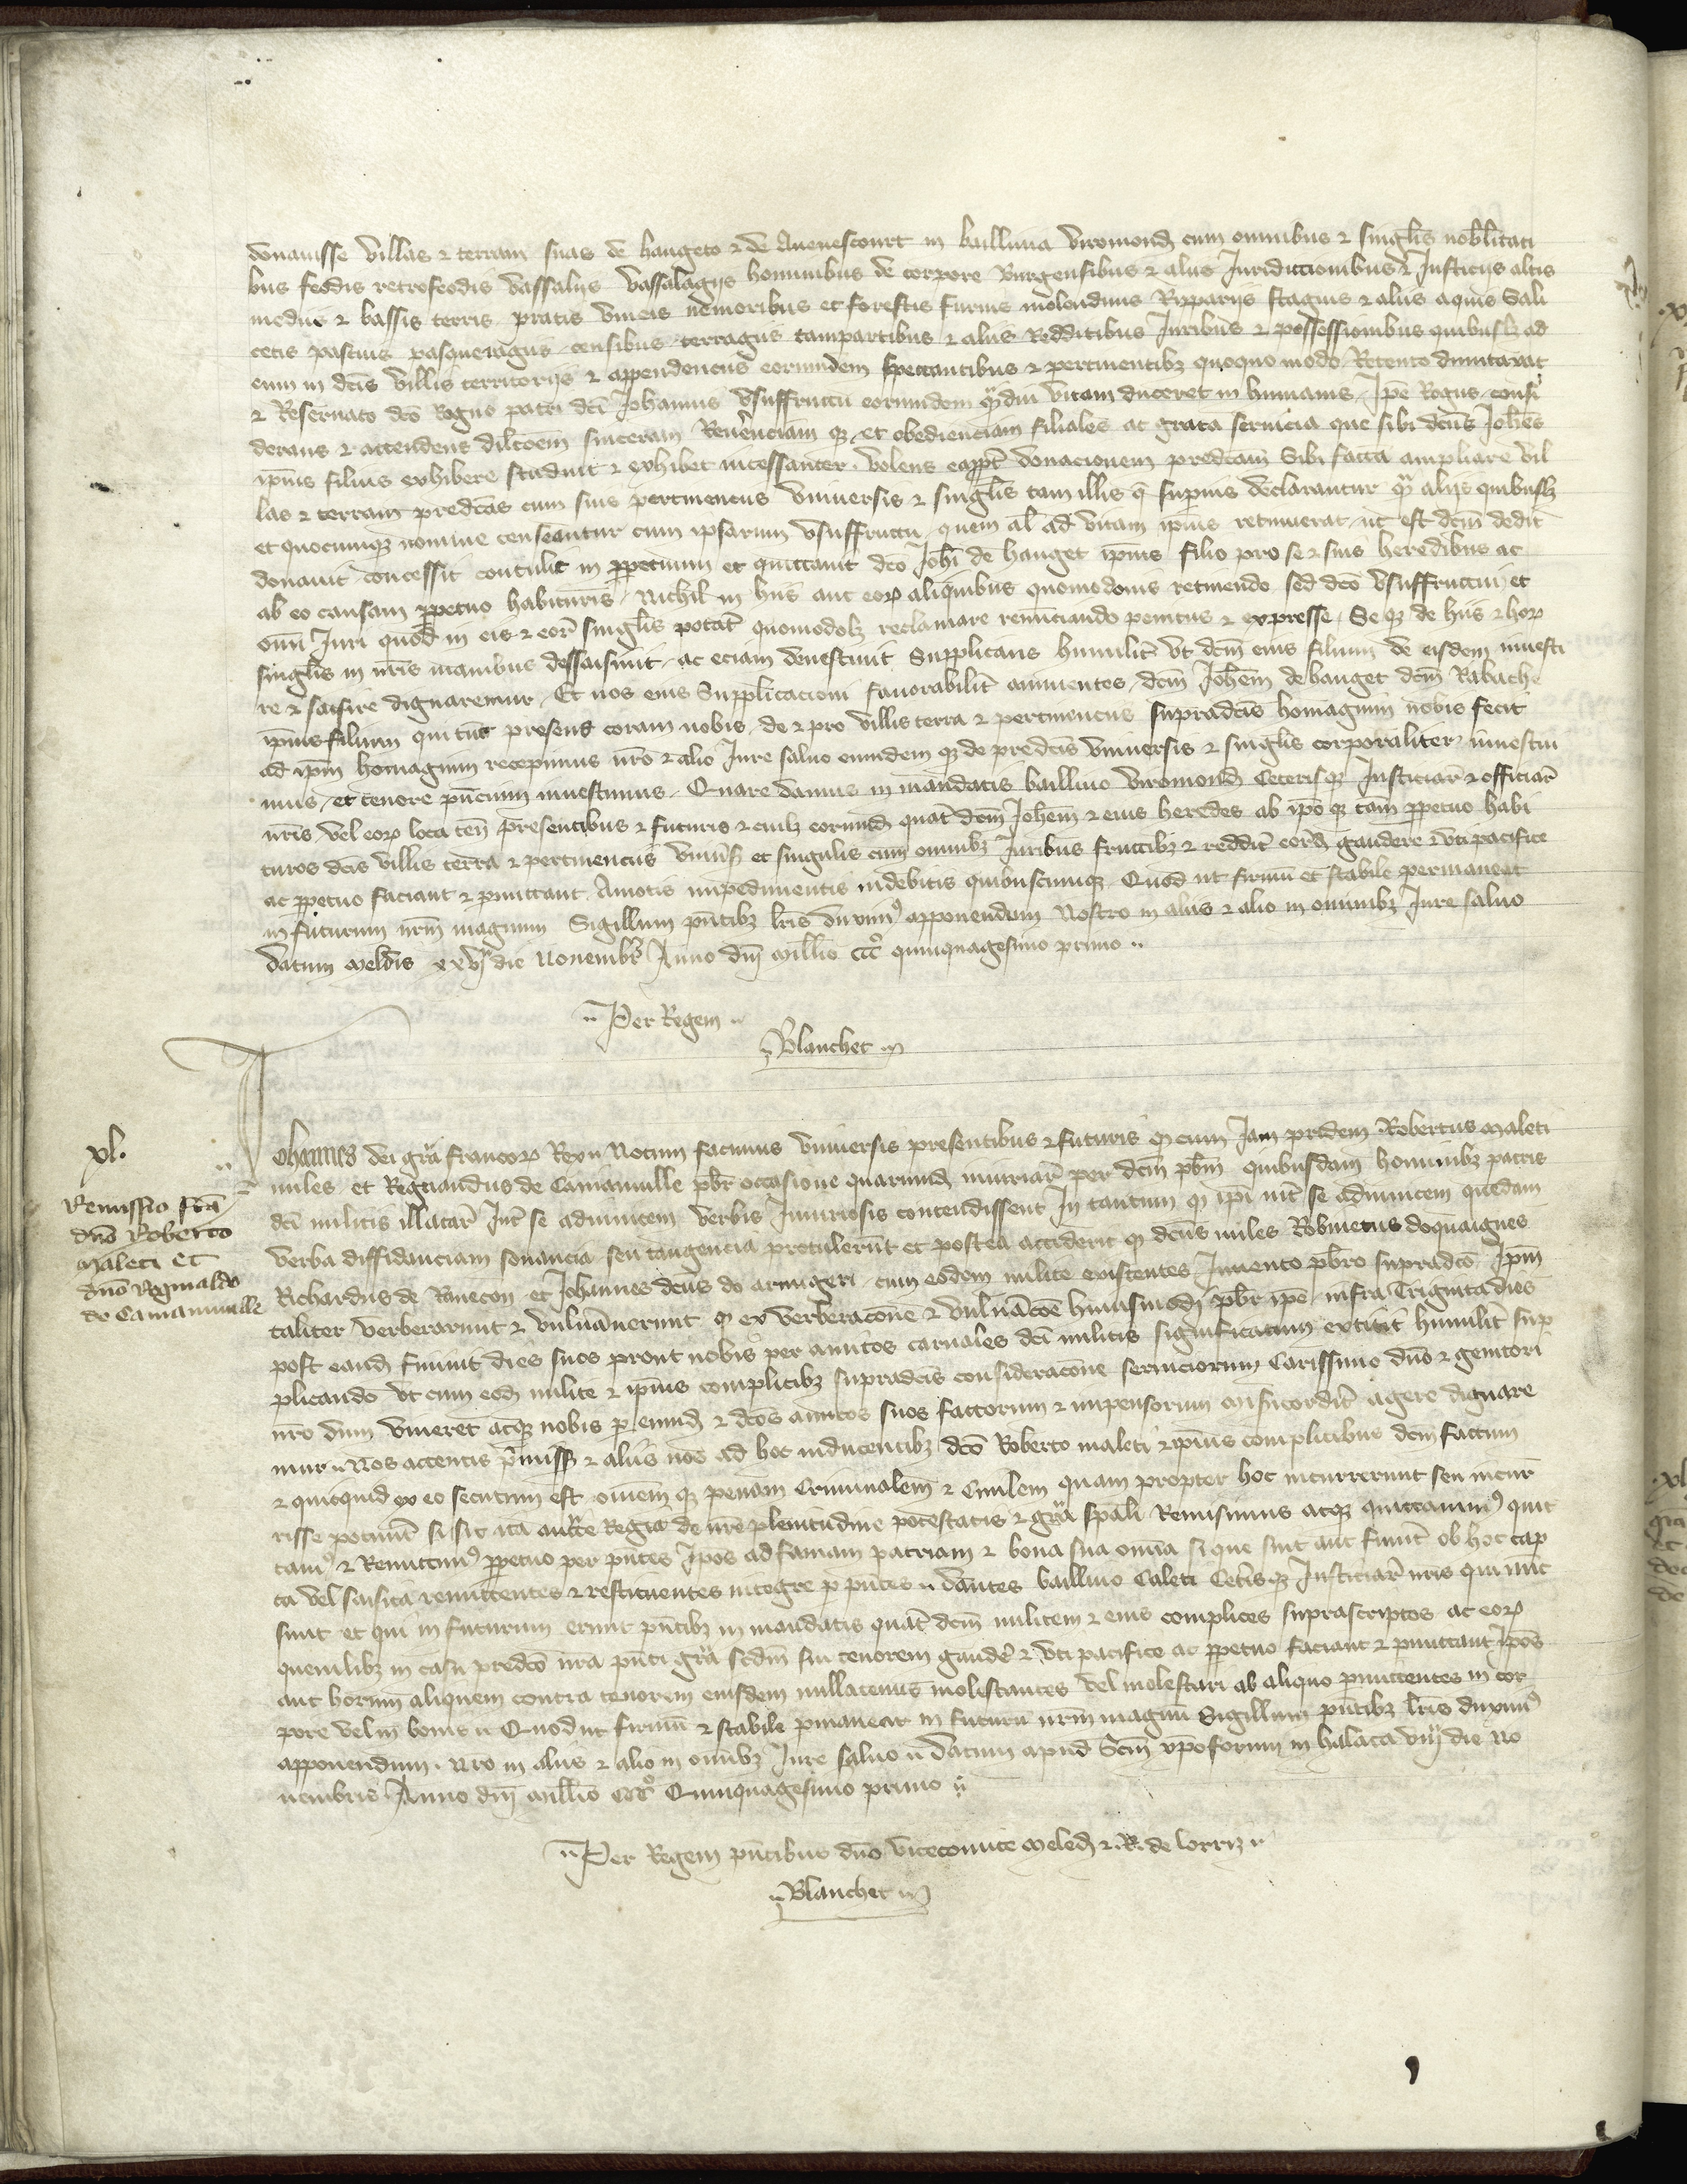 donauisse villas ⁊ terram suas de hangeto ⁊ de Auenescourt in balliuia viromond cum omnibus ⁊ singlis nobilitati
bus feodis retrofeodis vassalijs vassalagijs hominibus de corpore Burgensibus ⁊ alijs Juridictionibus ⁊ Justicijs altis
medijs ⁊ bassis terris pratis vineis nemoribus et forestis furnis molendinis Ripparijs stagnis ⁊ alijs aquis Sali
cetis pascuis pasqueragijs censibus terragijs campartibus ⁊ alijs Redditibus Juribus ⁊ possessionibus quibuslz ad
eum in dcis villis territorijs ⁊ appendencijs eorumdem spectantibus ⁊ pertinentibz quoquo modo Retento dumtaxat
⁊ Reseruato dco Rogno patri dci Johannis vsuffructu eorumdem qmdiu vitam duceret in humanis Ipe Rogus consi
derans ⁊ attendens dilcoem sinceram Reuerenciam qz et obedienciam filiales ac grata seruicia que sibi dcus Johes
ipius filius exhibere studuit ⁊ exhibet incessanter volens eappt donacionem predcam Sibi facta ampliare vil
las ⁊ terram predcas cum suis pertinencijs vniuersis ⁊ singlis tam illis q superius declarantur qm alijs quibuslz
et quocumqz nomine censeantur cum ipsarum vsuffructu quem al ad vitam ipius retinuerat ut est dcm dedit
donauit concessit contulit in ppetuum et quittauit dco Johi de hanget ipius filio pro se ⁊ suis heredibus ac
ab eo causam ppetuo habituris Nichil in hijs aut eorum aliquibus quomodouis retinendo sed dco vsuffructui et
omi Juri quod in eis ⁊ eor singlis potat quomodolz reclamare renunciando penitus ⁊ expresse Seqz de hijs ⁊ horum
singlis in nris manibus dessaisiuit ac eciam deuestiuit Supplicans humilit vt dcm eius filium de eisdem inuesti
re ⁊ saisire dignaremur Et nos eius Supplicacioni fauorabilit annuentes dcm Johem de hanget dcm Rabache
ipius filium qui tuc presens coram nobis de ⁊ pro villis terra ⁊ pertinencijs supradcis homagium nobis fecit
ad ipm homagium recepimus nro ⁊ alio Jure saluo eumdem qz de predcis vniuersis ⁊ singlis corporaliter inuestiui
mus et tenore pncium inuestimus Quare damus in mandatis balliuo viromond Ceterisqz Justiciar ⁊ officiar
nris vel eorum loca ten presentibus ⁊ futuris ⁊ cuilz eorumd quat dcm Johem ⁊ eius heredes ab ipo qz cam ppetuo habi
turos dcis villis terra ⁊ pertinencijs vniuis et singulis cum omnibz Juribus fructibz ⁊ reddit eord gaudere ⁊ vti pacifice
ac ppetuo faciant ⁊ pmittant Amotis impedimentis indebitis quibuscumqz Quod ut firmu et stabile permaneat
in futurum nrm magnum Sigillum pntibz lris duximus apponendum Nostro in alijs ⁊ alio in omnibz Jure saluo
Datum meldis xxvj die Nouembr Anno dni millio ccco quinquagesimo primo
Per Regem
Blanchet
xl.
Remissio fca
dno Roberto
maleti et
dno Reginaldo
de Camamuille
Johannes dei gra francorum Rex Notum facimus vniuersis presentibus ⁊ futuris q cum Jam pridem Robertus maleti
miles et Reginaudus de Camamuille pbr occasione quarumd iniuriar per dcm pbrm quibusdam hominibz patris
dci militis illatar Int se adinuicem verbis Iniuriosis contendissent In tantum q ipi int se adinuicem quedam
verba diffidanciam sonancia seu tangencia protulerunt et postea acciderit q dcus miles Robinetus doquaignes
Richardus de Bauecon et Johannes dcus do armigeri cum eodem milite existentes Inuento pbro supradco Ipm
taliter verberarunt ⁊ vulnauerunt q ex verberacone ⁊ vulnacoe huiusmodi pbr ipe infra Triginta dies
post eand finiuit dies suos prout nobis per amicos carnales dci militis significatum extitit humilit sup
plicando vt cum eod milite ⁊ ipius complicibz supradcis consideracone seruiciorum Carissimo dno ⁊ genitori
nro dum viueret atqz nobis p eumd ⁊ dcos amicos suos factorum ⁊ impensorum misicordit agere dignare
mur Nos attentis pmiss ⁊ alijs nos ad hoc inducentibz dco Roberto maleti ⁊ ipius complicibus dcm factum
⁊ quicquid ex eo secutum est omem qz penam Criminalem ⁊ Ciuilem quam propter hoc incurrerunt seu incur
risse potuint si sit ita aucte Regia de nre plenitudine potestatis ⁊ gra spali Remisimus atqz quittauimus quit
tamus ⁊ Remittimus ppetuo per pntes Ipos ad famam patriam ⁊ bona sua omia si que sint aut fuint ob hoc cap
ta vel saisita remittentes ⁊ restituentes integre p pntes Dantes balliuo Caleti Cetisqz Justiciar nris qui nuc
sunt et qui in futurum erunt pntibz in mandatis quat dcm militem ⁊ eius complices suprascriptos ac eorum
quemlibz in casu predco nra pnti gra scdm sui tenorem gaudere ⁊ vti pacifice ac ppetuo faciant ⁊ pmittant Ipos
aut horum aliquem contra tenorem eiusdem nullatenus molestantes vel molestari ab aliquo pmittentes in cor
pore vel in bonis Quod ut firmu ⁊ stabile pmaneat in futuru nrm magnu Sigillum pntibz lris duximus
apponendum. Nro in alijs ⁊ alio in omibz Jure saluo Datum apud Scm xpoforum in halata viij die No
uembris Anno dni millio ccco Quinquagesimo primo
Per Regem pntibus dno vicecomite meled ⁊ .R. de lorriz
Blanchet